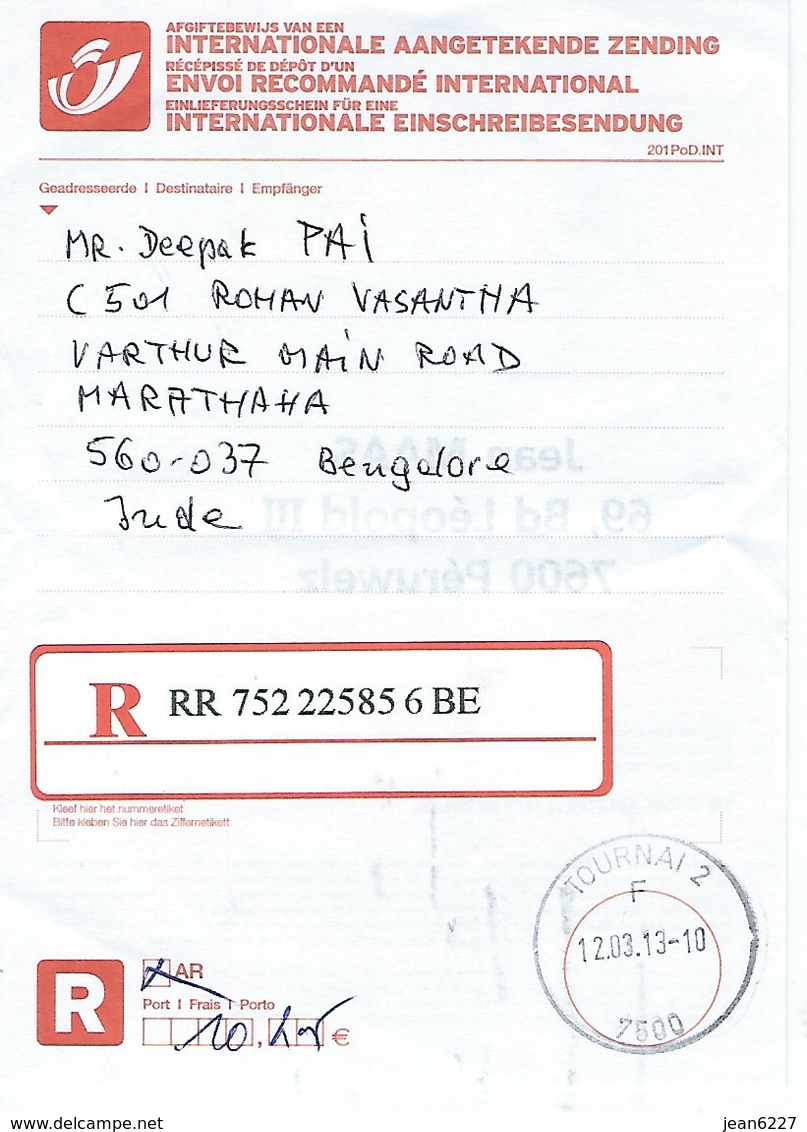 AFGIFTEBEWIJS VAN EEN
INTERNATIONALE AANGETEKENDE ZENDING
RÉCÉPISSÉ DE DÉPÔT D'UN
ENVOI RECOMMANDÉ INTERNATIONAL
EINLIEFERUNGSSCHEIN FÜR EINE
INTERNATIONALE EINSCHREIBESENDUNG
201PoD.INT
Geadresseerde I Destinataire I Empfänger
MR. Deepak PAi
C 501 ROHAN VASANTHA
VARTHUR MAiN ROAD
MARATHAHA
560-037 Bengalore
Inde
Jean MAAS
69, Bd Léopold III
7600 Péruwelz
R RR 752 22585 6 BE
Kleef hier het nummeretiket
Bitte kleben Sie hier das Ziffernetikett
TOURNAI 2
F
12.03.13-10
7500
R
AR
Port I Frais I Porto
10, €
www.delcampe.net
jean6227